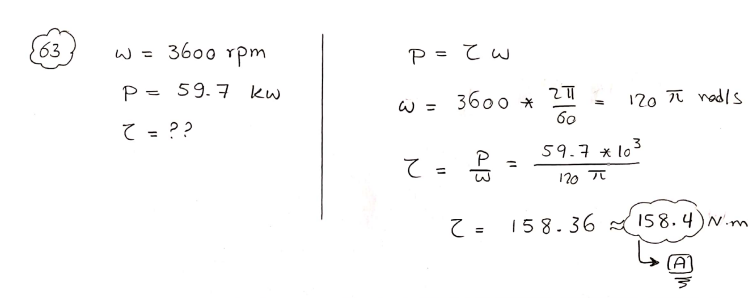 63
ω = 3600 rpm
P = 59.7 kw
τ = ??
P = τ ω
ω = 3600 * 2π/60 = 120 π rad/s
τ = P/ω = 59.7 * 10³ / 120 π
τ = 158.36 ≈ 158.4 N.m
A